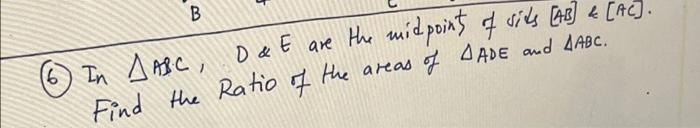 B
⑥ In △ABC, D & E are the midpoint of sids [AB] & [AC].
Find the Ratio of the areas of △ADE and △ABC.